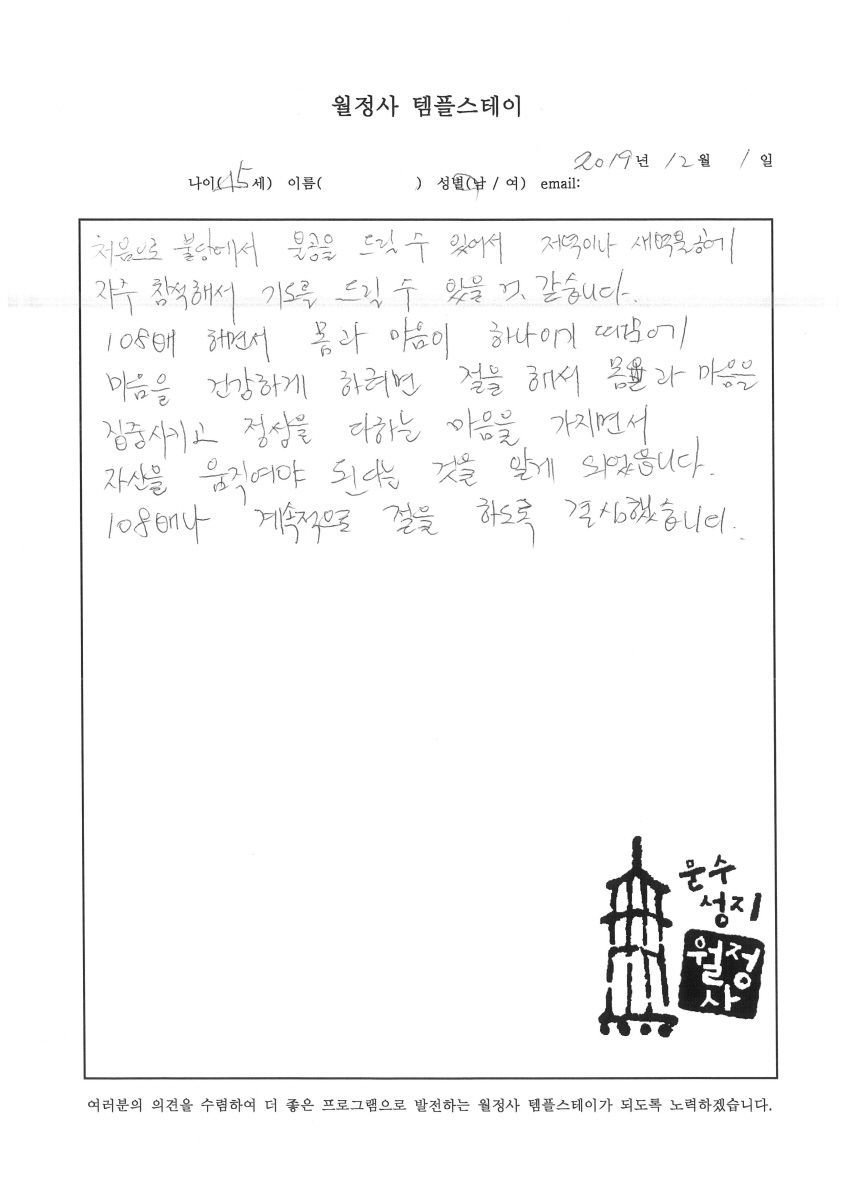 월정사 템플스테이
2019년 12월 1일
나이(45세) 이름( ) 성별(남 / 여) email:
처음으로 불당에서 불공을 드릴 수 있어서 저녁이나 새벽불공에
자주 참석해서 기도를 드릴 수 있을 것 같습니다.
108배 하면서 몸과 마음이 하나이기 때문에
마음을 건강하게 하려면 절을 해서 몸과 마음을
집중시키고 정성을 다하는 마음을 가지면서
자신을 움직여야 된다는 것을 알게 되었습니다.
108배나 계속적으로 절을 하도록 결심했습니다.
문수
성지
월정
사
여러분의 의견을 수렴하여 더 좋은 프로그램으로 발전하는 월정사 템플스테이가 되도록 노력하겠습니다.